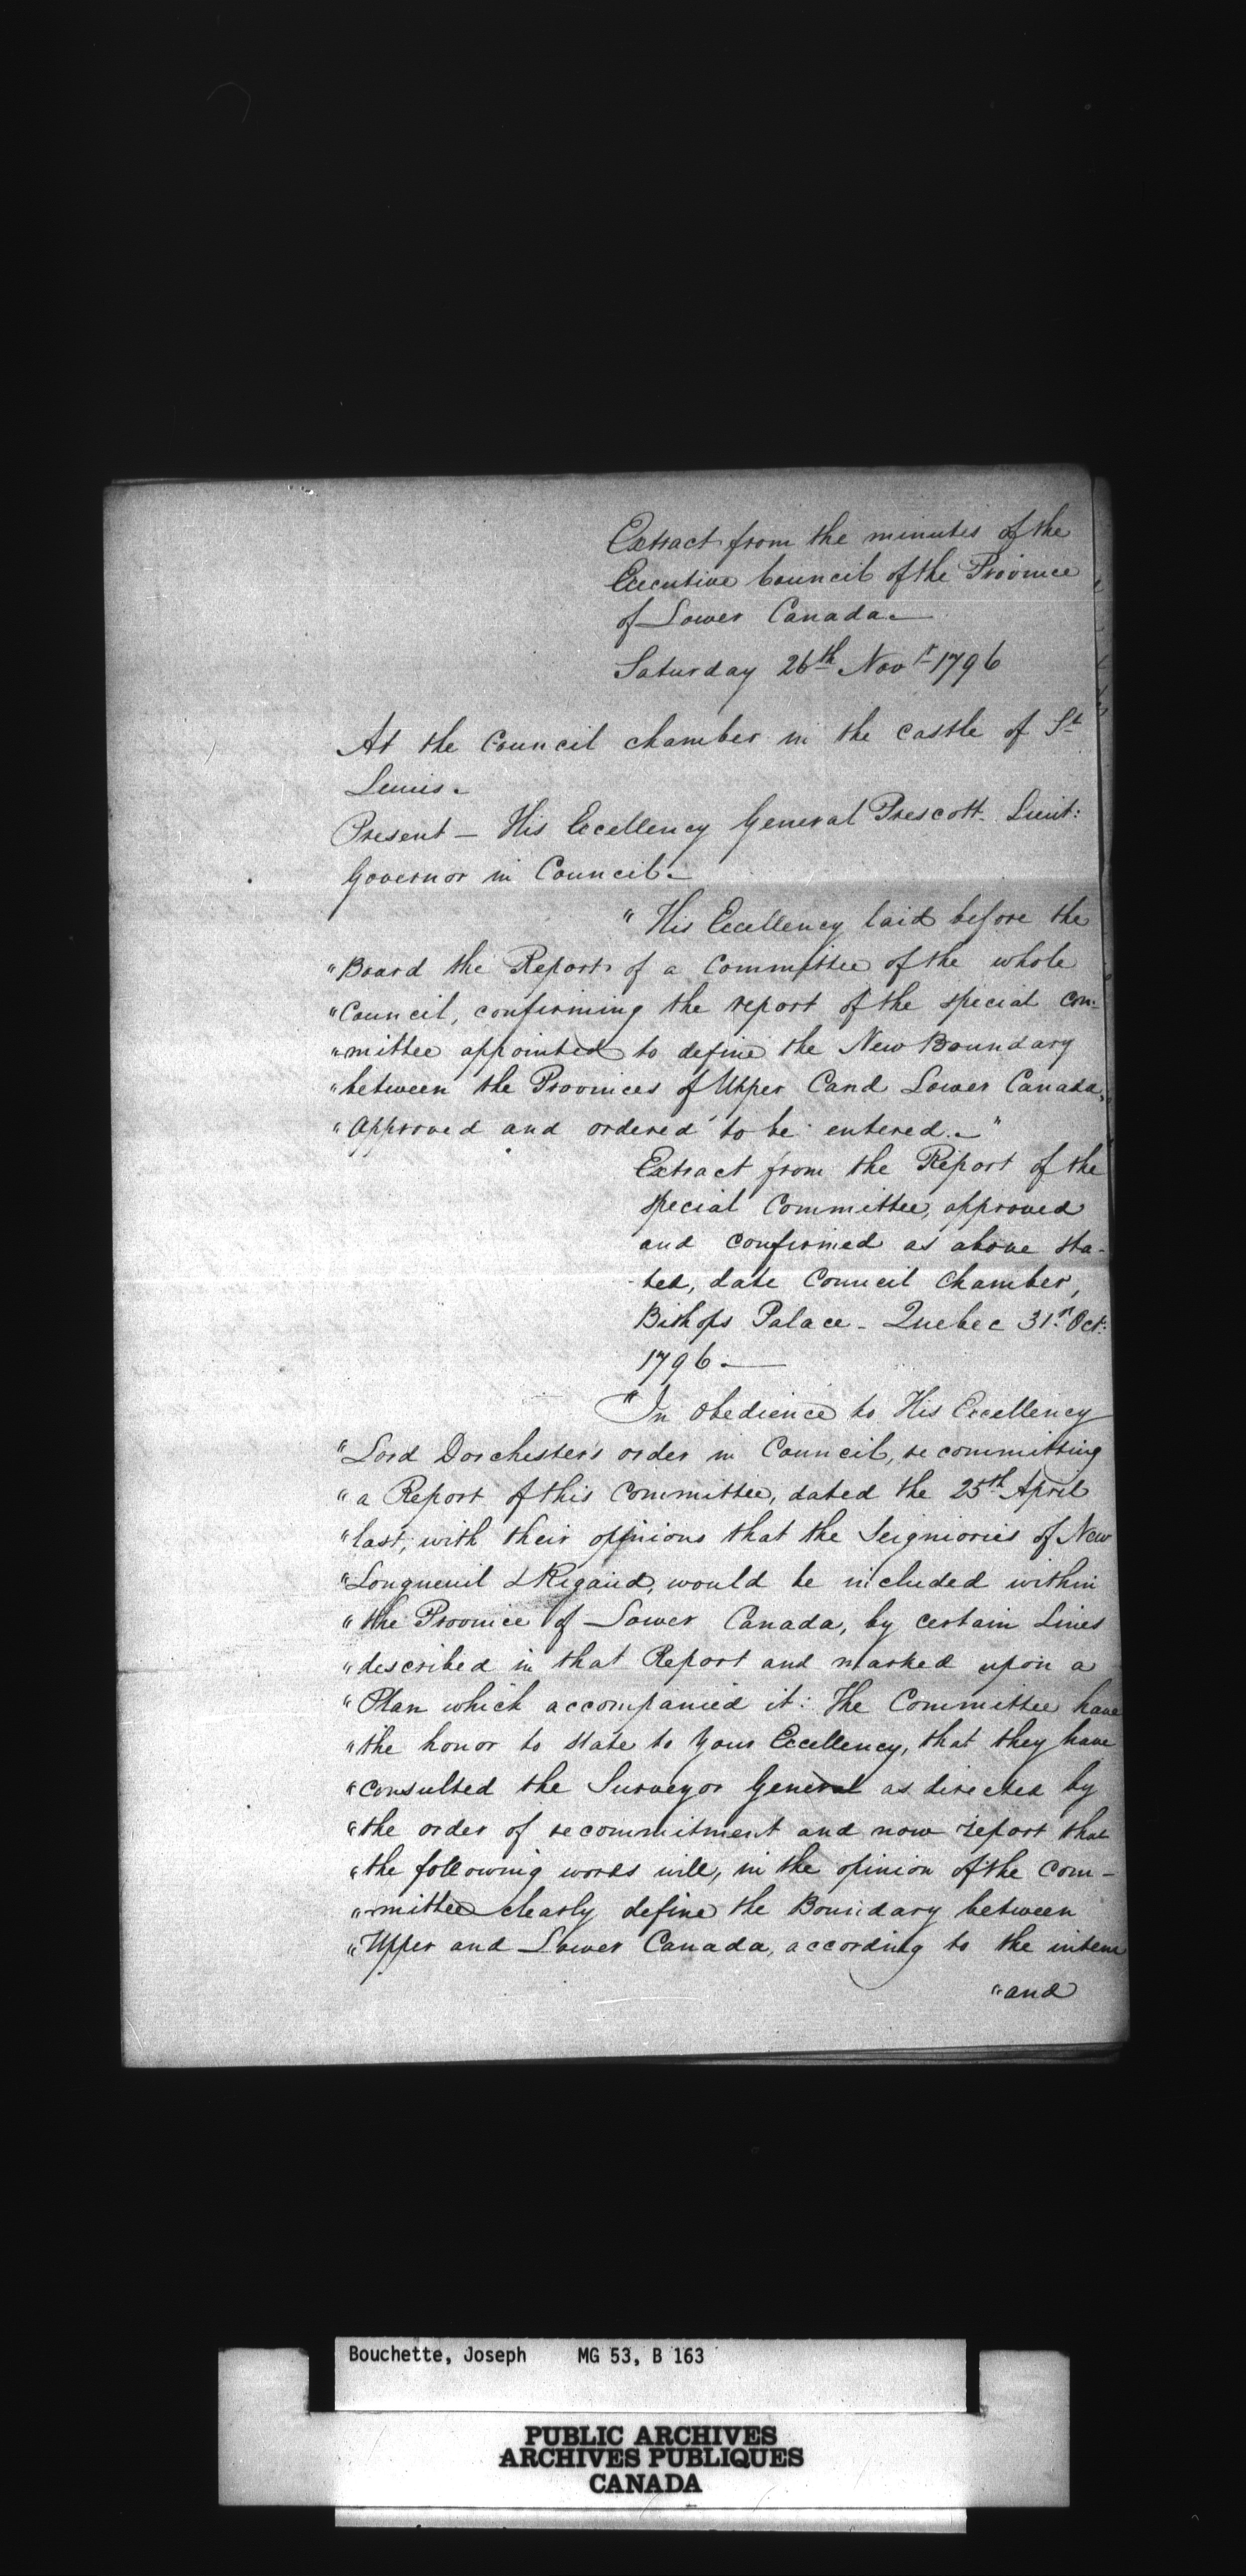 Extract from the minutes of the
Executive Council of the Province
of Lower Canada.—
Saturday 26th Novr 1796
At the Council chamber in the castle of St
Lewis.
Present — His Excellency General Prescott. Lieut:
Governor in Council.—
" His Excellency laid before the
"Board the Report of a Committee of the whole
"Council, confirming the report of the special com-
"mittee appointed to define the New Boundary
"between the Provinces of Upper Cand Lower Canada,
"Approved and ordered to be entered.—"
Extract from the Report of the
special Committee, approved
and confirmed as above sta-
-ted, date Council Chamber,
Bishops Palace - Quebec 31st Oct:
1796.—
"In obedience to His Excellency
"Lord Dorchester's order in Council, recommitting
"a Report of this Committee, dated the 25th April
"last, with their opinions that the Seigniories of New
"Longueuil & Rigaud, would be included within
"the Province of Lower Canada, by certain Lines
"described in that Report and marked upon a
"Plan which accompanied it: The Committee have
"the honor to state to your Excellency, that they have
"consulted the Surveyor General as directed by
"the order of recommitment and now report that
"the following words will, in the opinion of the Com-
"mittee clearly define the Boundary between
"Upper and Lower Canada, according to the intent
"and
Bouchette, Joseph MG 53, B 163
PUBLIC ARCHIVES
ARCHIVES PUBLIQUES
CANADA